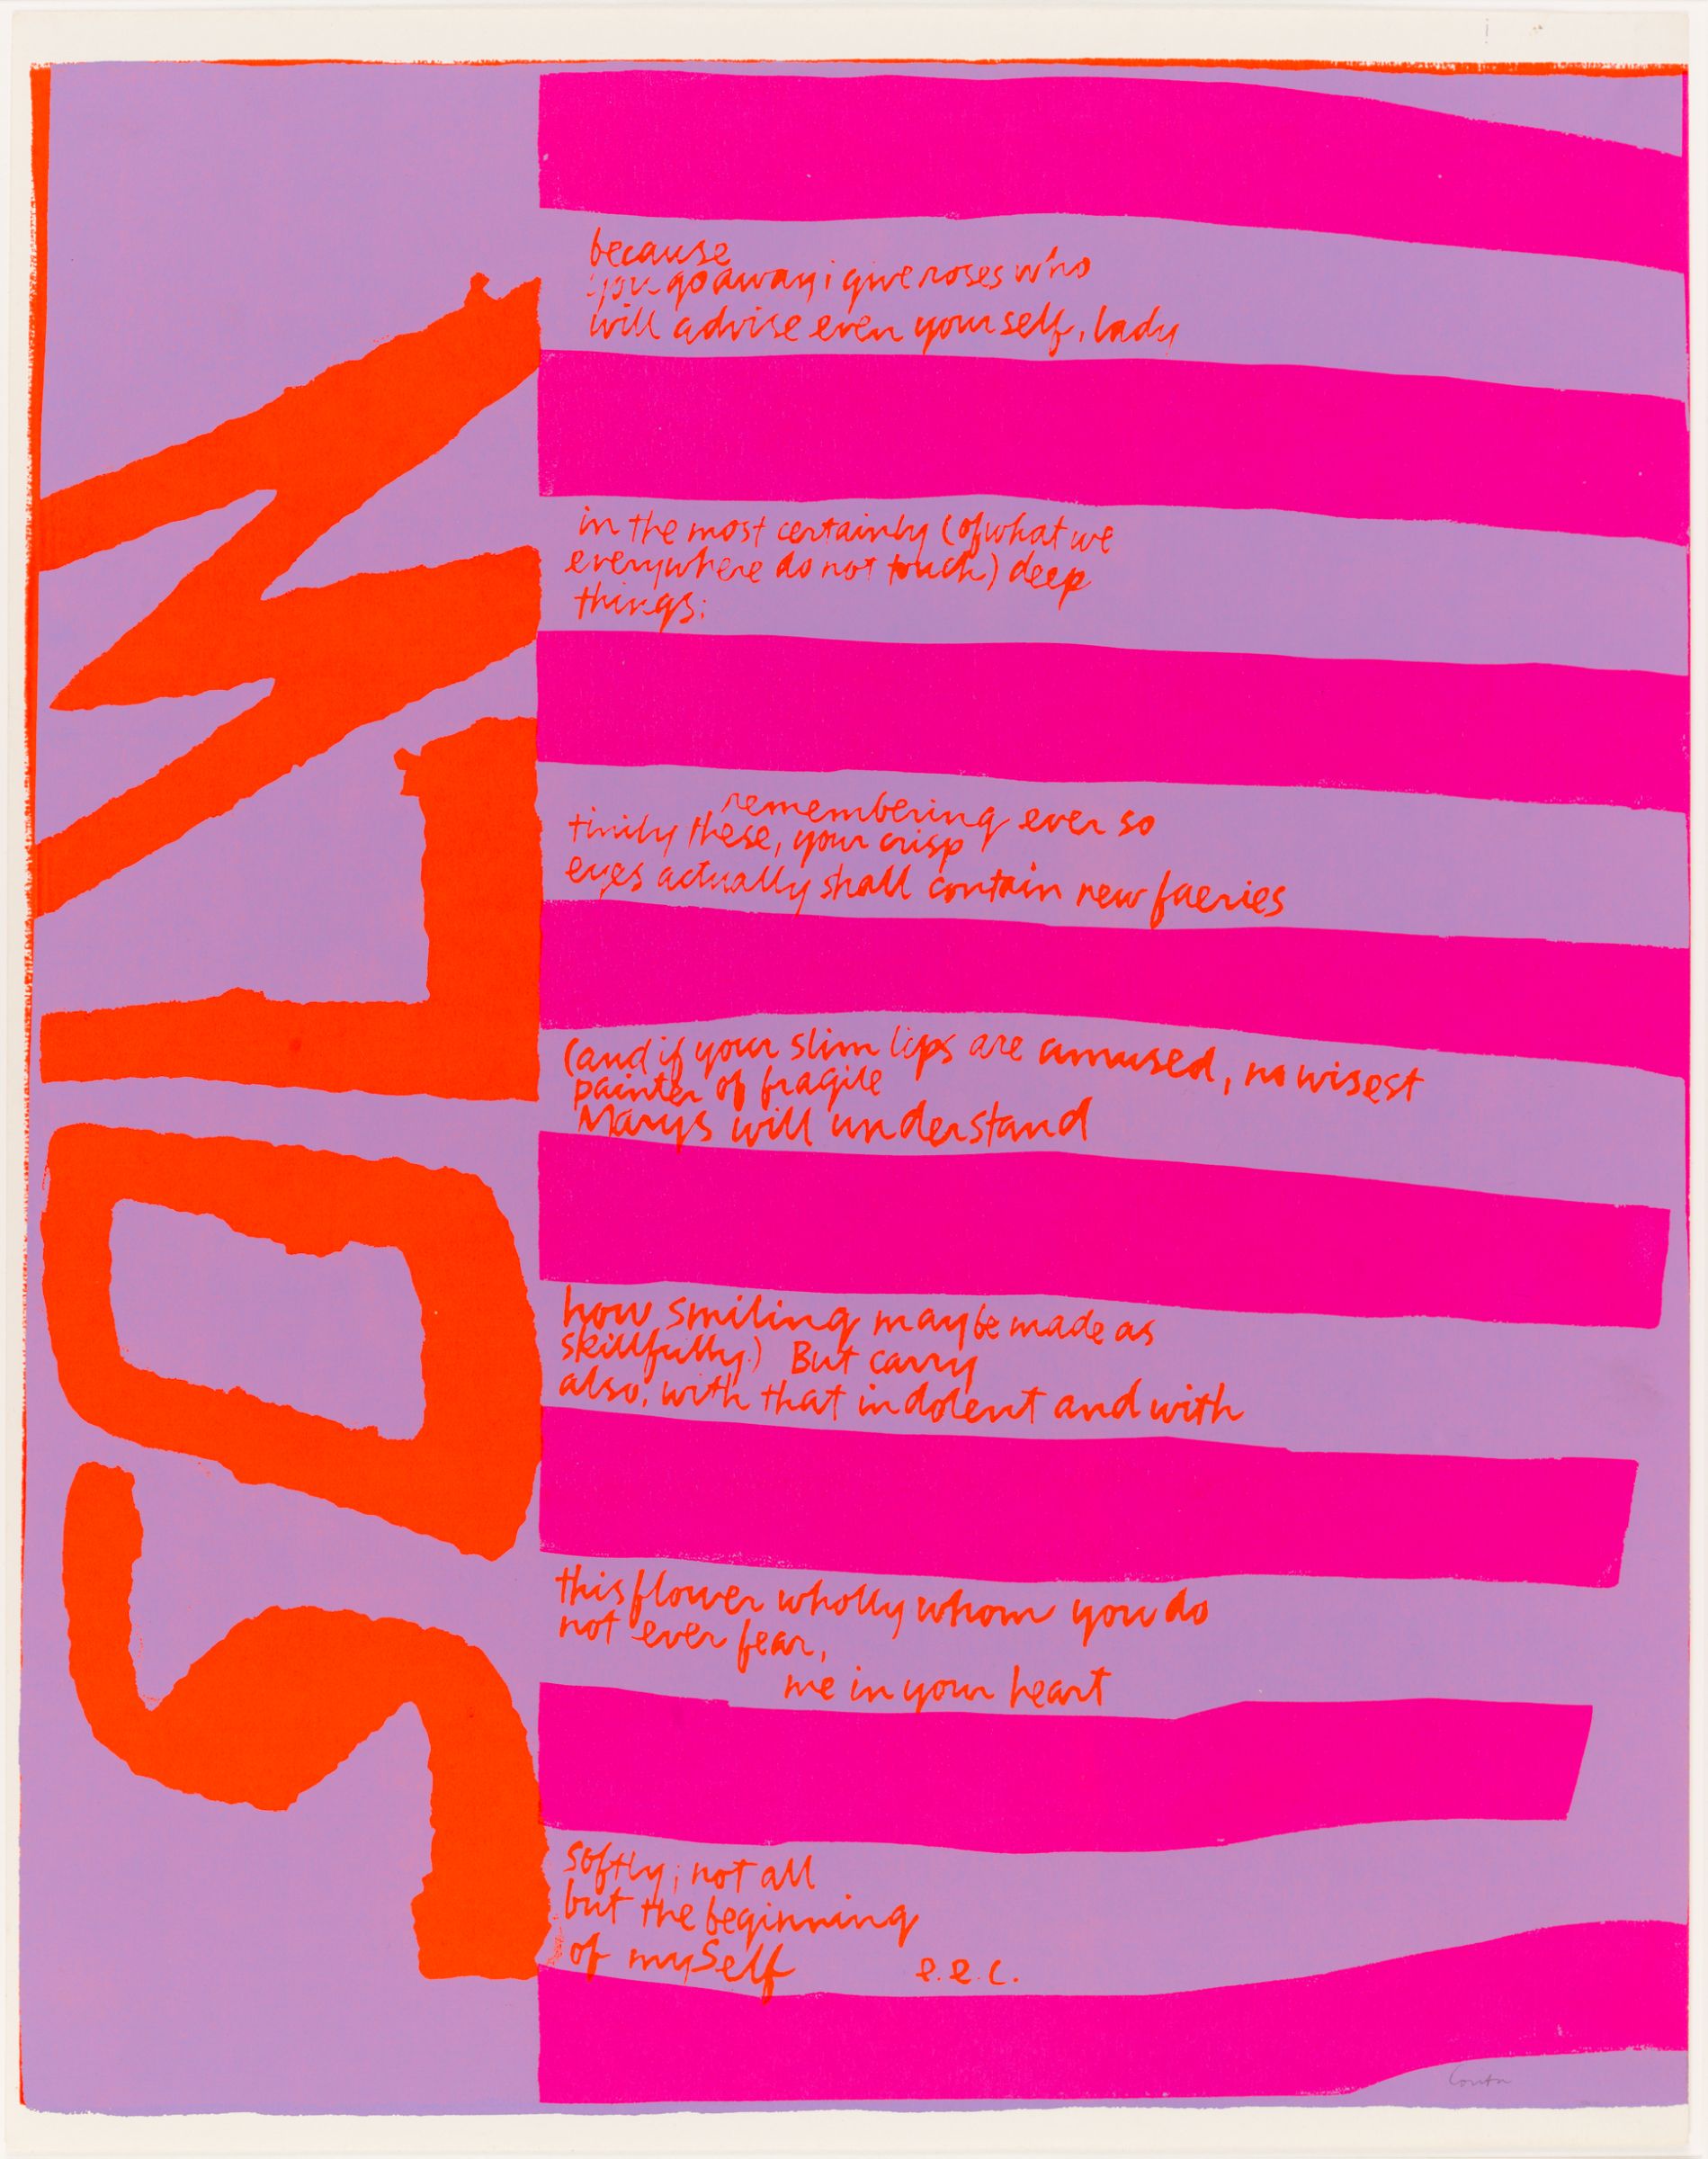 SOLW
because
you go away i give roses who
will advise even yourself, lady
in the most certainly (of what we
everywhere do not touch) deep
things;
remembering ever so
tinily these, your crisp
eyes actually shall contain new faeries
(and if your slim lips are amused, no wisest
painter of fragile
Marys will understand
how smiling may be made as
skillfully.) But carry
also, with that indolent and with
this flower wholly whom you do
not ever fear,
me in your heart
softly; not all
but the beginning
of mySelf
e.e.c.
Corita